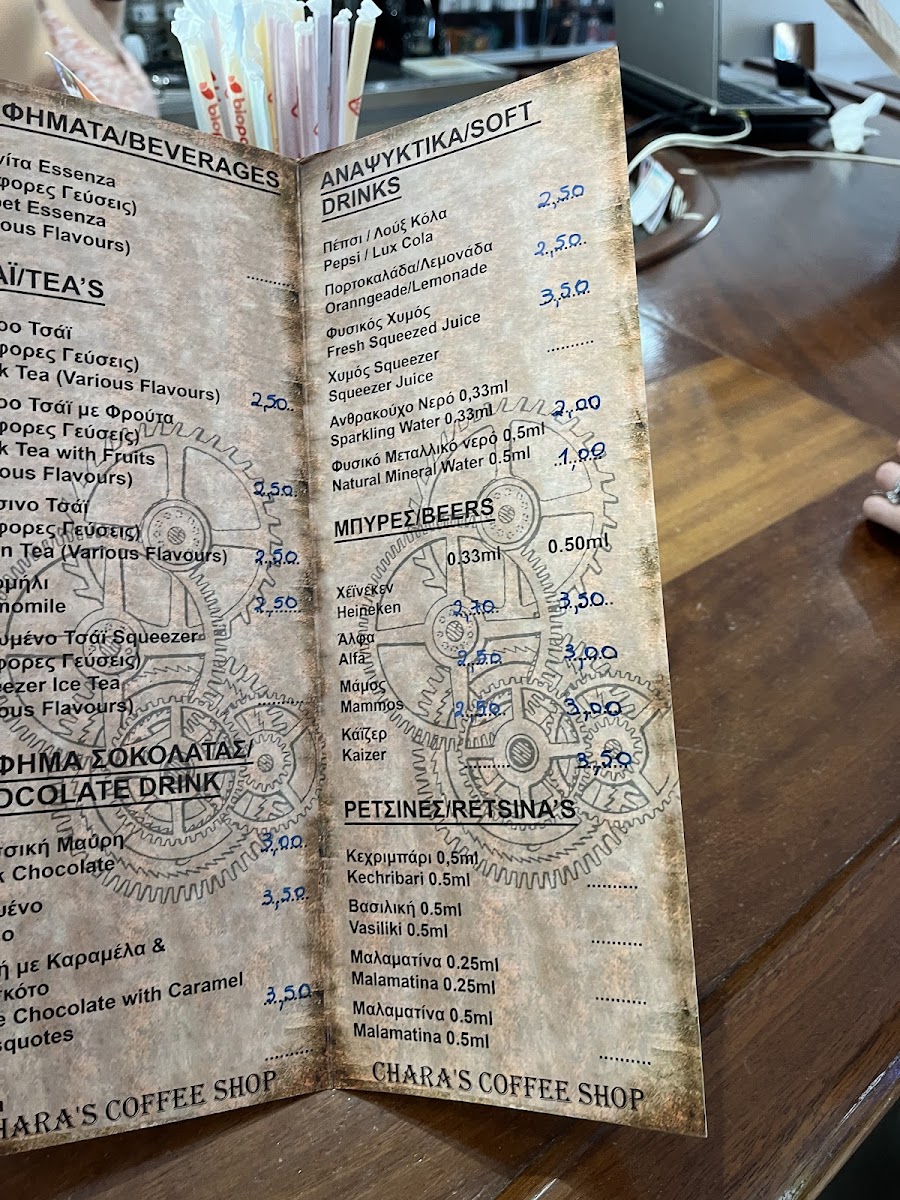 biopo
ΦΗΜΑΤΑ/BEVERAGES
νίτα Essenza
φορες Γεύσεις)
bet Essenza
ious Flavours)
..........
ΑΪ/TEA'S
ρο Τσάϊ
φορες Γεύσεις)
k Tea (Various Flavours) 2,50
ρο Τσάϊ με Φρούτα
φορες Γεύσεις)
k Tea with Fruits
ious Flavours) 2,50
σινο Τσάϊ
φορες Γεύσεις)
n Tea (Various Flavours) 2,50
ομήλι
momile 2,50
ωμένο Τσάϊ Squeezer
φορες Γεύσεις)
eezer Ice Tea
ous Flavours) ..........
ΦΗΜΑ ΣΟΚΟΛΑΤΑΣ/
OCOLATE DRINK
σσική Μαύρη 3,00
k Chocolate
μένο 3,50
ο
ή με Καραμέλα &
κότο
e Chocolate with Caramel 3,50
squotes
..........
HARA'S COFFEE SHOP
ΑΝΑΨΥΚΤΙΚΑ/SOFT
DRINKS
Πέπσι / Λούξ Κόλα 2,50
Pepsi / Lux Cola
Πορτοκαλάδα/Λεμονάδα 2,50
Oranngeade/Lemonade
Φυσικός Χυμός 3,50
Fresh Squeezed Juice
Χυμός Squeezer ..........
Squeezer Juice
Ανθρακούχο Νερό 0,33ml
Sparkling Water 0,33ml 2,00
Φυσικό Μεταλλικό νερό 0,5ml
Natural Mineral Water 0.5ml 1,00
ΜΠΥΡΕΣ/BEERS
0.33ml 0.50ml
Χέϊνεκεν
Heineken 2,70 3,50
Άλφα
Alfa 2,50 3,00
Μάμος
Mammos 2,50 3,00
Κάϊζερ
Kaizer .......... 3,50
ΡΕΤΣΙΝΕΣ/RETSINA'S
Κεχριμπάρι 0,5ml
Kechribari 0.5ml ..........
Βασιλική 0.5ml
Vasiliki 0.5ml ..........
Μαλαματίνα 0.25ml
Malamatina 0.25ml ..........
Μαλαματίνα 0.5ml
Malamatina 0.5ml ..........
CHARA'S COFFEE SHOP